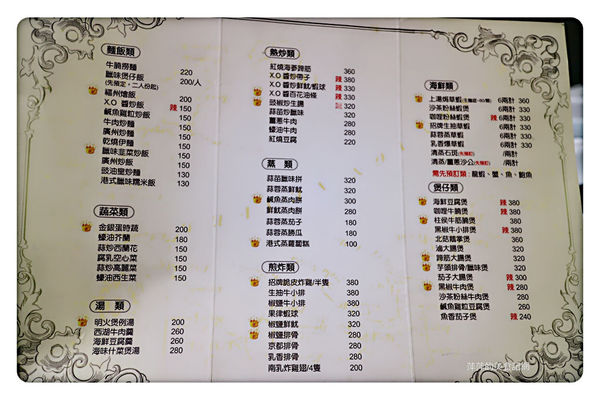 麵飯類
牛腩撈麵 220
臘味煲仔飯 200/人
(先預定,二人份起)
福州燴飯 200
X.O 醬炒飯 辣 150
鹹魚雞粒炒飯 150
牛肉炒麵 150
廣州炒麵 150
乾燒伊麵 150
臘味韭菜炒飯 150
廣州炒飯 150
豉油皇炒麵 130
港式臘味糯米飯 130
蔬菜類
金銀蛋時蔬 200
蠔油芥蘭 180
蒜炒西蘭花 150
腐乳空心菜 150
蒜炒高麗菜 150
蠔油西生菜 150
湯 類
明火煲例湯 200
西湖牛肉羹 260
海鮮豆腐羹 260
海味什菜煲湯 280
熱炒類
紅燒海蔘蹄筋 360
X.O 醬炒帶子 辣 380
X.O 醬炒鮮魷/蝦球 辣 330
X.O 醬百花油條 辣 330
豉椒炒生腸 320
蒜苗炒臘味 320
薑蔥牛肉 280
蠔油牛肉 280
紅燒豆腐 220
蒸 類
蒜苗臘味拼 320
蒜蓉蒸鮮魷 320
鹹魚蒸肉餅 300
鮮魷蒸肉餅 280
蒜蓉蒸茄子 180
蒜蓉蒸勝瓜 180
港式蒸蘿蔔糕 100
煎炸類
招牌脆皮炸雞/半隻 380
生抽牛小排 380
椒鹽牛小排 380
果律蝦球 320
椒鹽鮮魷 320
椒鹽排骨 280
京都排骨 280
乳香排骨 280
南乳炸雞翅/4隻 200
海鮮類
上湯焗草蝦 6兩計 360 330
沙茶粉絲蝦煲 6兩計 330
咖哩粉絲蝦煲 辣 6兩計 330
招牌生抽草蝦 6兩計 330
蒜蓉蒸草蝦 6兩計 330
乳香爆草蝦 6兩計 330
清蒸石斑(先預訂) /兩計
清蒸/薑蔥沙公(先預訂) /兩計
需先預訂類:龍蝦、蟹、魚、鮑魚
煲仔類
海鮮豆腐煲 辣 380
咖哩牛腩煲 辣 380
柱侯牛筋腩煲 380
黑椒牛小排煲 辣 380
北菇雞掌煲 360
滷大腸煲 320
蹄筋大腸煲 320
芋頭排骨/臘味煲 320
茄子大腸煲 辣 300
黑椒牛肉煲 辣 280
沙茶粉絲牛肉煲 280
鹹魚雞粒豆腐煲 260
魚香茄子煲 辣 240